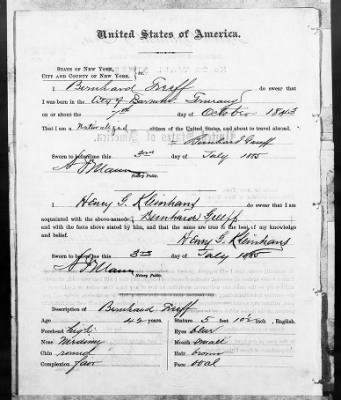 United States of America.
STATE OF NEW YORK,
CITY AND COUNTY OF NEW YORK, ss.
I Bernhard Greeff do swear that
I was born in the City of Barmen Germany
on or about the 7th day of October 1843
That I am a Naturalized citizen of the United States, and about to travel abroad.
Bernhard Greeff
Sworn to before me this 3rd day of July 1885
Notary Public.
I Henry G. Kleinhans do swear that I am
acquainted with the above-named Bernhard Greeff
and with the facts above stated by him, and that the same are true to the best of my knowledge
and belief.
Henry G. Kleinhans
Sworn to before me this 3rd day of July 1885
Notary Public.
Description of Bernhard Greeff
Age 42 years. Stature 5 feet 10½ inch, English.
Forehead high Eyes blue
Nose Mouth small
Chin round Hair brown
Complexion fair Face oval